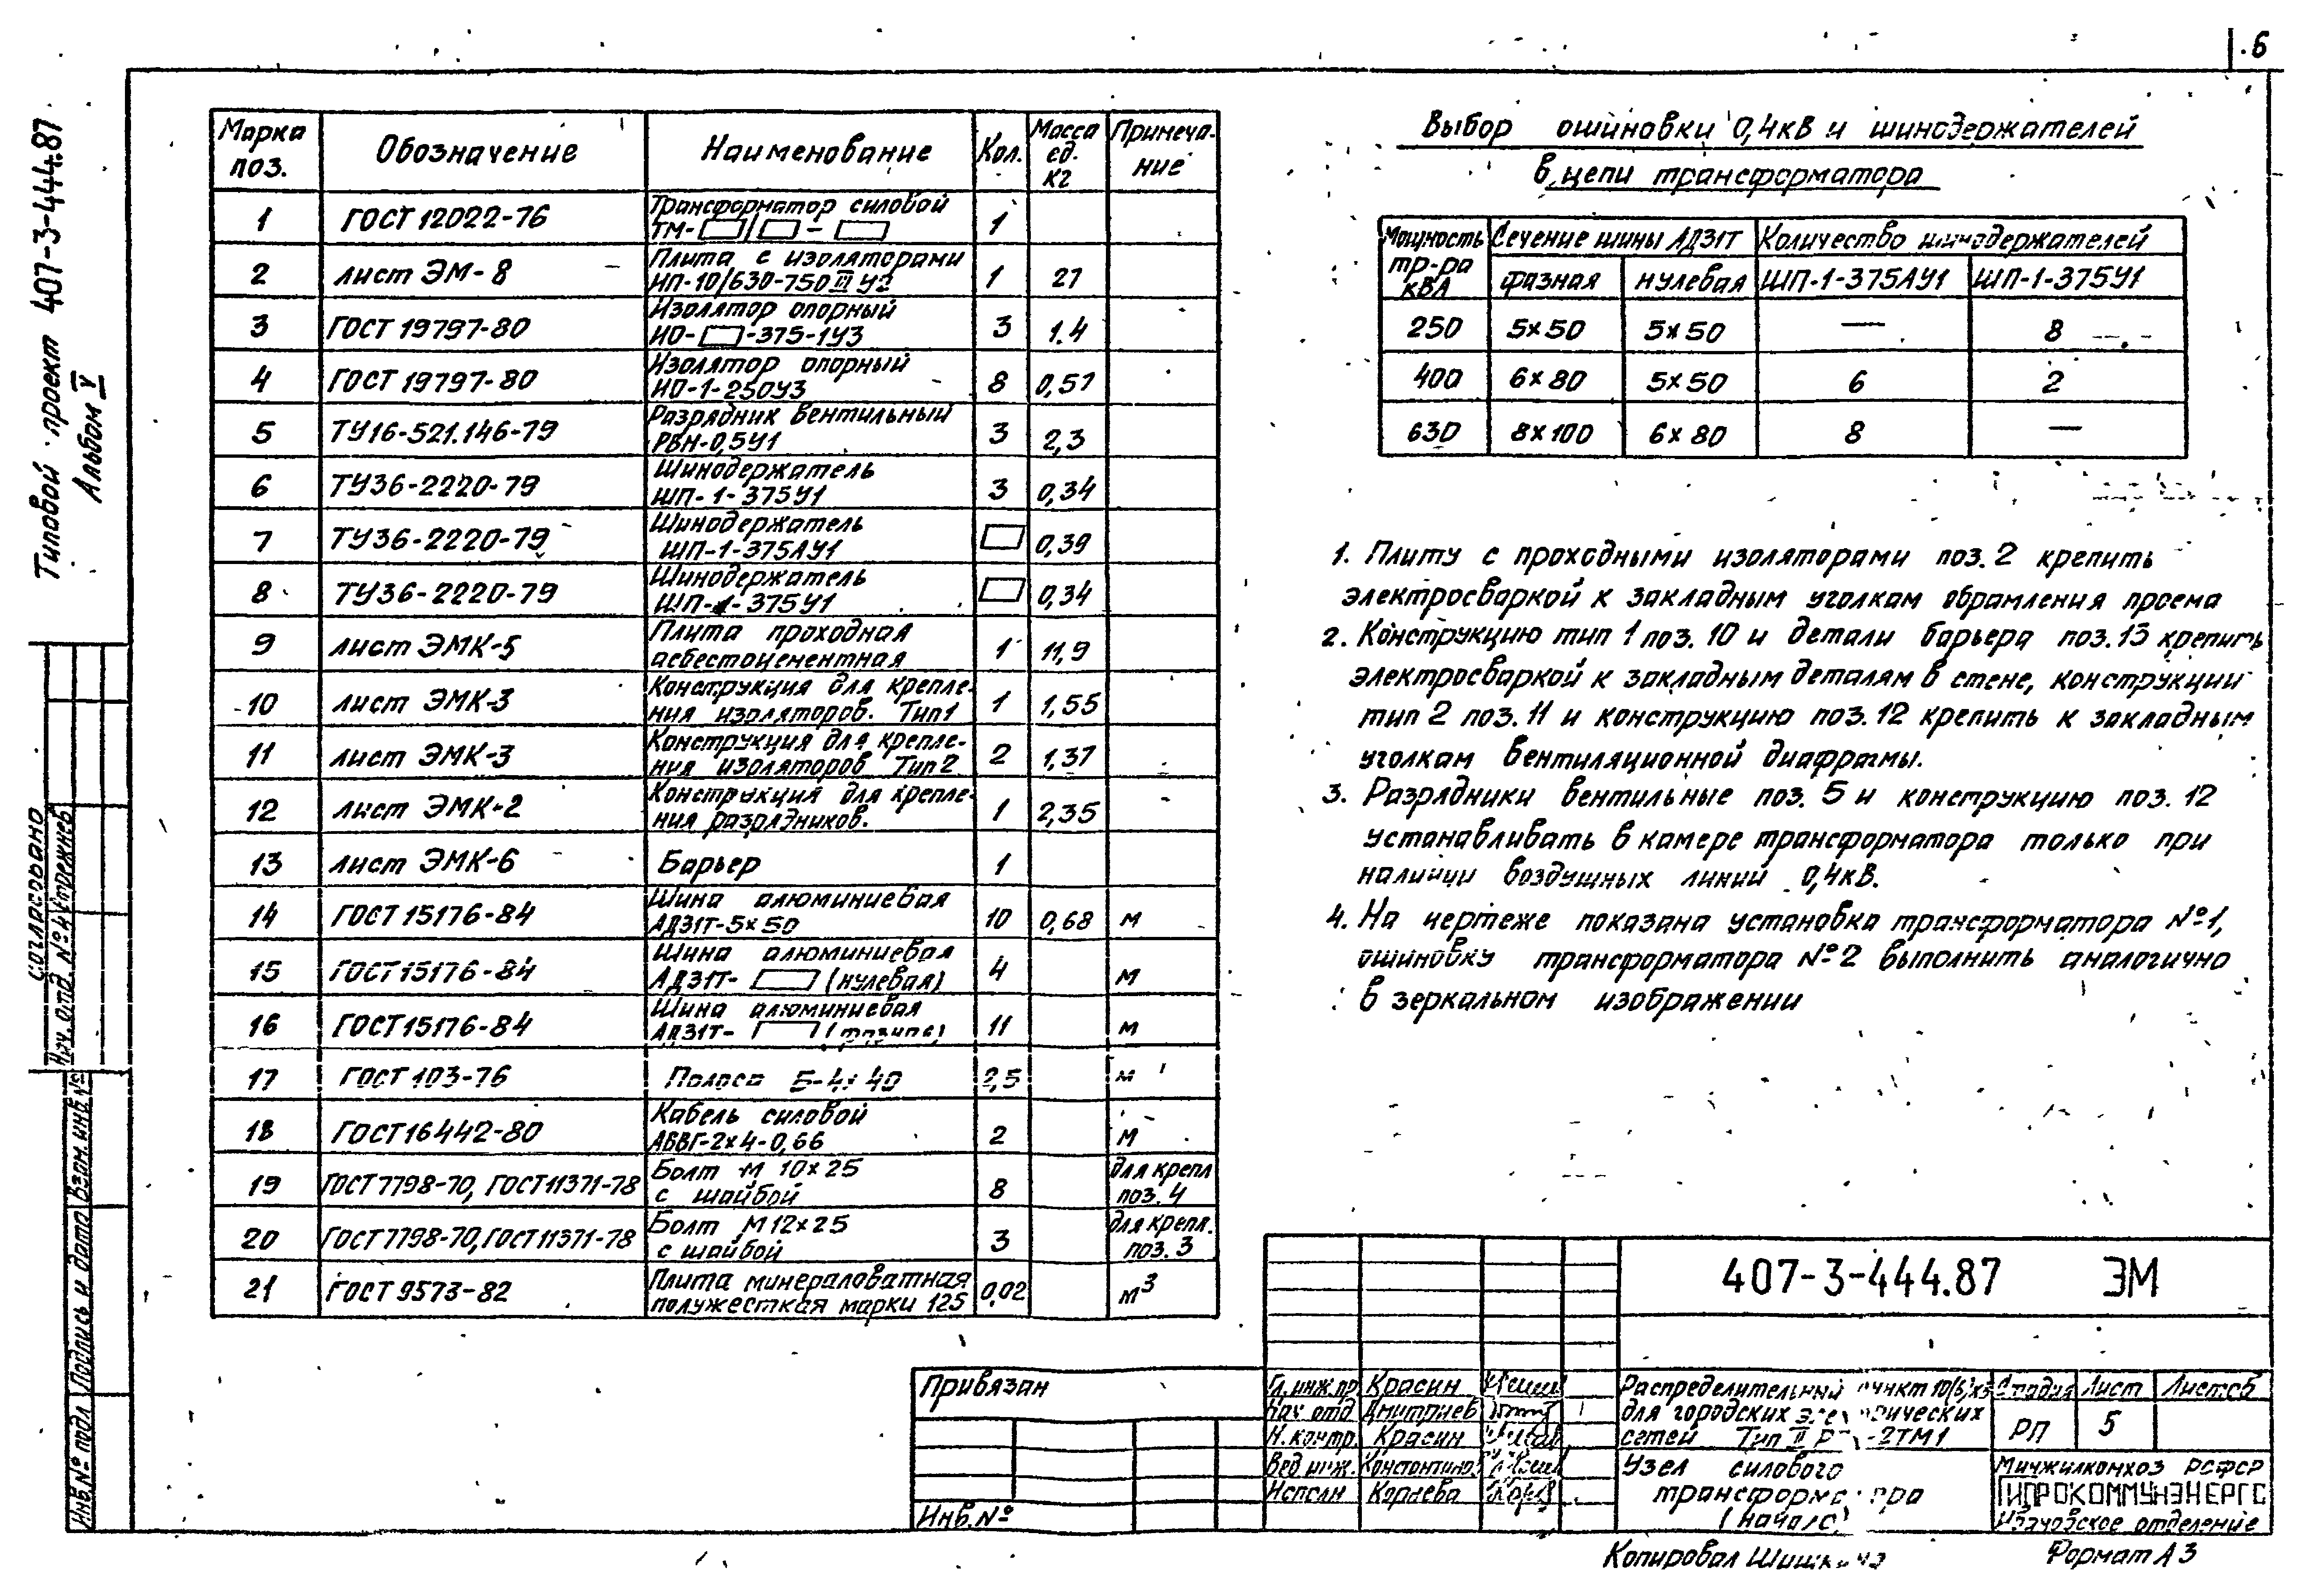 6
Типовой проект 407-3-444.87
Альбом V
Марка поз. Обозначение Наименование Кол. Масса ед. кг Примеча-ние
1 ГОСТ 12022-76 Трансформатор силовой ТМ-▭/▭-▭ 1
2 лист ЭМ-8 Плита с изоляторами ИП-10/630-750 III У2 1 27
3 ГОСТ 19797-80 Изолятор опорный ИО-▭-375-1У3 3 1.4
4 ГОСТ 19797-80 Изолятор опорный ИО-1-250У3 8 0,57
5 ТУ16-521.146-79 Разрядник вентильный РВН-0,5У1 3 2,3
6 ТУ36-2220-79 Шинодержатель ШП-1-375У1 3 0,34
7 ТУ36-2220-79 Шинодержатель ШП-1-375АУ1 ▭ 0,39
8 ТУ36-2220-79 Шинодержатель ШП-1-375У1 ▭ 0,34
9 лист ЭМК-5 Плита проходная асбестоцементная 1 11,9
10 лист ЭМК-3 Конструкция для крепле-ния изоляторов. Тип1 1 1,55
11 лист ЭМК-3 Конструкция для крепле-ния изоляторов Тип2 2 1,37
12 лист ЭМК-2 Конструкция для крепле-ния разрядников. 1 2,35
13 лист ЭМК-6 Барьер 1
14 ГОСТ 15176-84 Шина алюминиевая АД31Т-5×50 10 0,68 м
15 ГОСТ 15176-84 Шина алюминиевая АД31Т-▭(нулевая) 4 м
16 ГОСТ 15176-84 Шина алюминиевая АД31Т-▭ 11 м
17 ГОСТ 103-76 Полоса Б-4×40 2,5 м
18 ГОСТ 16442-80 Кабель силовой АВВГ-2×4-0,66 2 м
19 ГОСТ 7798-70, ГОСТ 11371-78 Болт М 10×25 с шайбой 8 для крепл поз. 4
20 ГОСТ 7798-70, ГОСТ 11371-78 Болт М12×25 с шайбой 3 для крепл. поз. 3
21 ГОСТ 9573-82 Плита минераловатная полужесткая марки 125 0,02 м³
Выбор ошиновки 0,4кВ и шинодержателей
в цепи трансформатора
Мощность тр-ра кВА Сечение шины АД31Т Количество шинодержателей
фазная нулевая ШП-1-375АУ1 ШП-1-375У1
250 5×50 5×50 — 8
400 6×80 5×50 6 2
630 8×100 6×80 8 —
1. Плиту с проходными изоляторами поз. 2 крепить
электросваркой к закладным уголкам обрамления проема
2. Конструкцию тип 1 поз. 10 и детали барьера поз. 13 крепить
электросваркой к закладным деталям в стене, конструкции
тип 2 поз. 11 и конструкцию поз. 12 крепить к закладным
уголкам вентиляционной диафрагмы.
3. Разрядники вентильные поз. 5 и конструкцию поз. 12
устанавливать в камере трансформатора только при
наличии воздушных линий 0,4кВ.
4. На чертеже показана установка трансформатора №1,
ошиновку трансформатора №2 выполнить аналогично
в зеркальном изображении
Согласовано
Нач. отд. №4 Стрежнев
Инв.№ подл Подпись и дата Взам. инв №
407-3-444.87 ЭМ
Привязан
Инв.№
Гл. инж. пр Красин
Нач отд Дмитриев
Н. контр. Красин
Вед инж.
Исполн
Распределительный пункт 10(6)
для городских электрических
сетей Тип II -2ТМ1
Узел силового
трансформатора
(начало)
Стадия Лист Листов
РП 5
Минжилкомхоз РСФСР
ГИПРОКОММУНЭНЕРГО
Ивановское отделение
Копировал
Формат А3